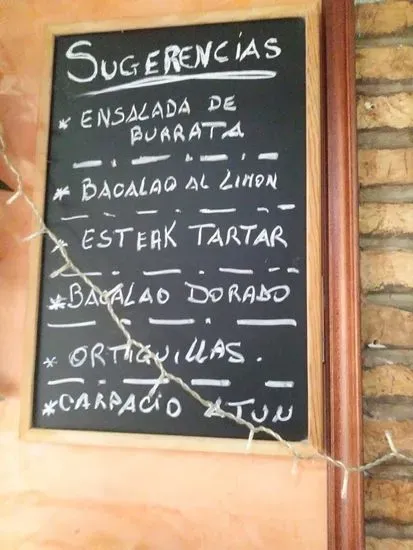 SUGERENCIAS
* ENSALADA DE
BURRATA
* BACALAO AL LIMON
* ESTEAK TARTAR
* BACALAO DORADO
* ORTIGUILLAS.
* CARPACIO ATUN